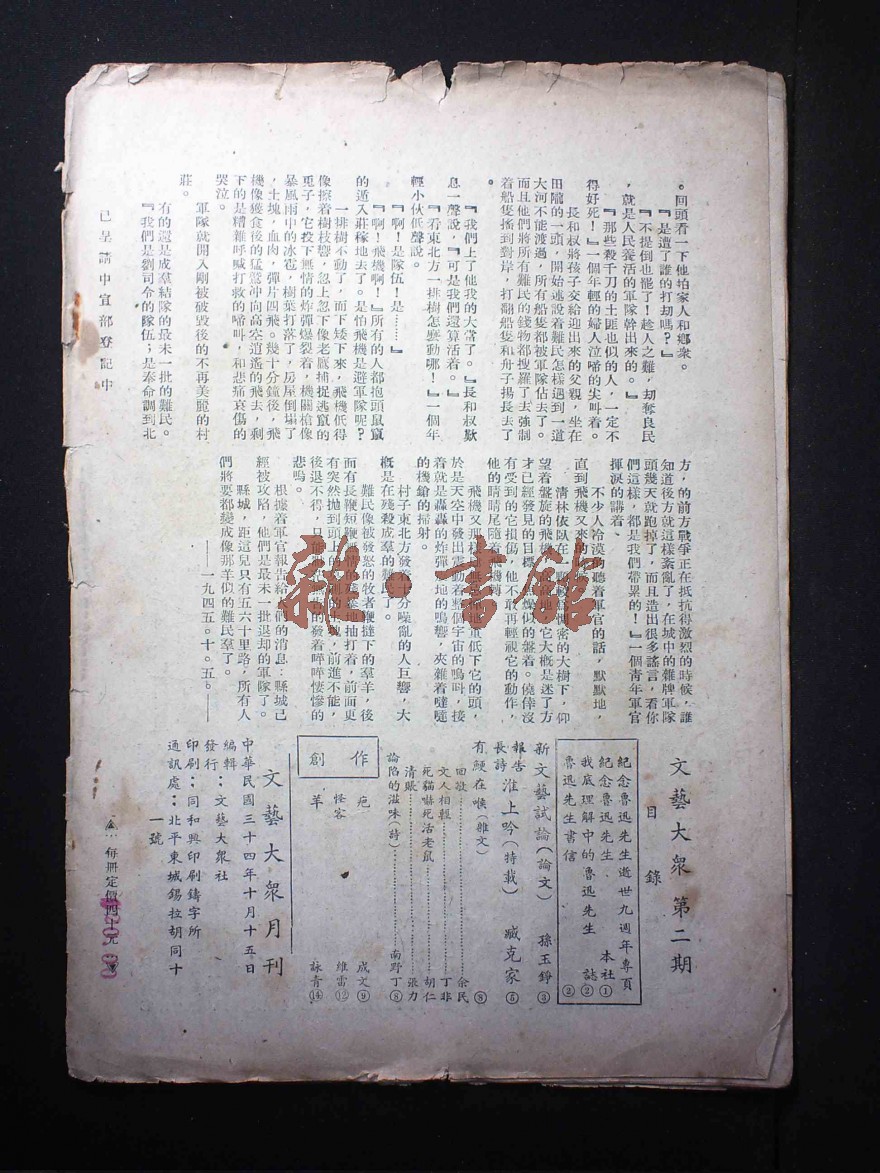 。回頭看一下他怕家人和鄉衆。
『是遭了誰的打刧嗎？』
『不提倒也罷了！趁人之難，刧奪良民
，就是人民養活的軍隊幹出來的。』
『那些殺千刀的土匪也似的人，一定不
得好死！』一個年輕的婦人泣啼的尖叫着。
長和叔將孩子交給迎出來的父親，坐在
田隴的一頭，開始速說着難民怎樣遇到一道
大河不能渡過，所有船隻都被軍隊佔去了。
而且他們將所有難民的錢物都搜羅了去強制
着船隻搖到對岸，打翻船隻和舟子揚長去了
。
『我們上了他我的大當了。』長和叔歎
息一聲說，『可是我們還算活着。』
『看東北方一排樹怎麽動哪！』一個年
輕小伙低聲說。
『啊！是隊伍！是……』
『啊！飛機啊！』所有的人都抱頭鼠竄
的遁入莊稼地去了。是怕飛機是避軍隊呢？
一排樹不動了，而下矮下來，飛機低得
像擦着樹枝響，忽上忽下像老鷹捕捉逃竄的
兎子，它投下無情的炸彈爆裂着，機關槍像
暴風雨中的冰雹，樹葉打落了，房屋倒塌了
，土塊，血肉，彈片四飛。幾十分鐘後，飛
機像獲食後的猛鷙沖向高空逍遙的飛去，剩
下的是糟雜呼喊打救的啼叫，和悲痛哀傷的
哭泣。
軍隊就開入剛被破毀後的不再美麗的村
莊。
有的還是成羣結隊的最末一批的難民。
『我們是劉司令的隊伍；是奉命調到北
已呈請中宣部登記中
方，的前方戰爭正在抵抗得激烈的時候，誰
知道後方就這樣紊亂了，在城中的雜牌軍隊
頭幾天就跑掉了，而且造出很多謠言，看你
們這樣，都是我們帶累的！』一個青年軍官
揮淚的講着、
不少人冷漠的聽着軍官的話，默默地，
直到飛機又來的
清林依臥在 稠密的大樹下，仰
望着盤旋的飛機 它大概是迷了方
才已經發見的目標 似的盤着。僥倖沒
有受到的它損傷，他不敢再輕視它的動作，
他的睛睛尾隨着 機轉
飛機又那樣 地重低下它的頭，
於是天空中發出震動着整個宇宙的鳴叫，接
着就是轟轟的炸彈 地的鳴響，夾雜着噠噠
的機鎗的掃射。
村子東北方發着十分噪亂的人巨響，大
概是在殘殺成羣的難 了。
難民像被發怒的牧者鞭撻下的羣羊，後
而有長鞭短鞭 地抽打着，前面更
有突然拋到頭上的 塊，前進不能，
後退不得，只能 的發着哗哗悽慘的
悲鳴。
根據着軍官報告給人們的消息：縣城已
經被攻陷，他們是最末一批退却的軍隊了。
縣城，距這兒只有五六十里路，所有人
們將要都變成像那羊似的難民羣了。
——一九四五。十。五。——
雜·書館
文藝大衆 第二期
目錄
紀念魯迅先生逝世九週年專頁
紀念魯迅先生 本社①
我底理解中的魯迅先生 誌②
魯迅先生書信 ②
新文藝試論（論文） 孫玉錚③
報告長詩 淮上吟（特載） 臧克家⑤
有鯁在喉（雜文） ⑧
回敬……余民
文人相輕……丁非
死貓嚇死活老鼠……胡仁
清賬……張力
淪陷的滋味（詩）……南野丁⑧
創作
疤 成文⑨
怪客 維雷⑫
羊 詠青⑭
文藝大衆月刊
中華民國三十四年十月十五日
編輯
發行：文藝大衆社
印刷：同和興印刷鑄字所
通訊處：北平東城錫拉胡同十
一號
每册定價四十元